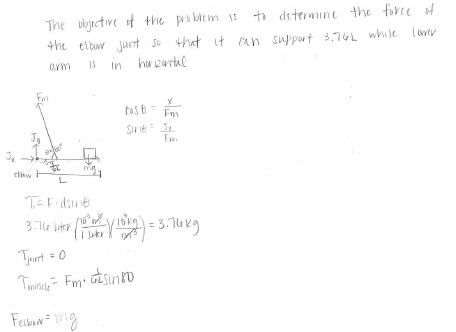 The objective of the problem is to determine the force of
the elbow joint so that it can support 3.76L while lower
arm is in horizontal
Fm
cos θ = x / Fm
sin θ = Jx / Fm
Jy
Jx
elbow
mg
L
τ = F·d sin θ
3.76 liter (10⁻³ m³ / 1 liter)(10³ kg / m³) = 3.76 kg
τjoint = 0
τmuscle = Fm · 1/6 L sin 80
Felbow = mg